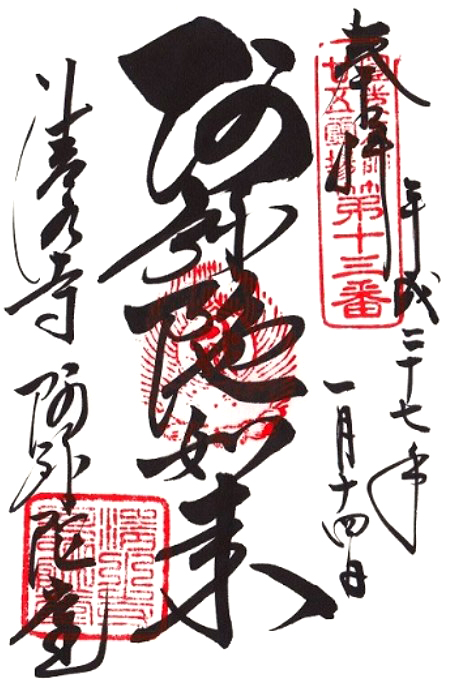 奉拝
第十三番
平成二十七年
一月十四日
阿弥陀如来
清水寺 阿弥陀堂